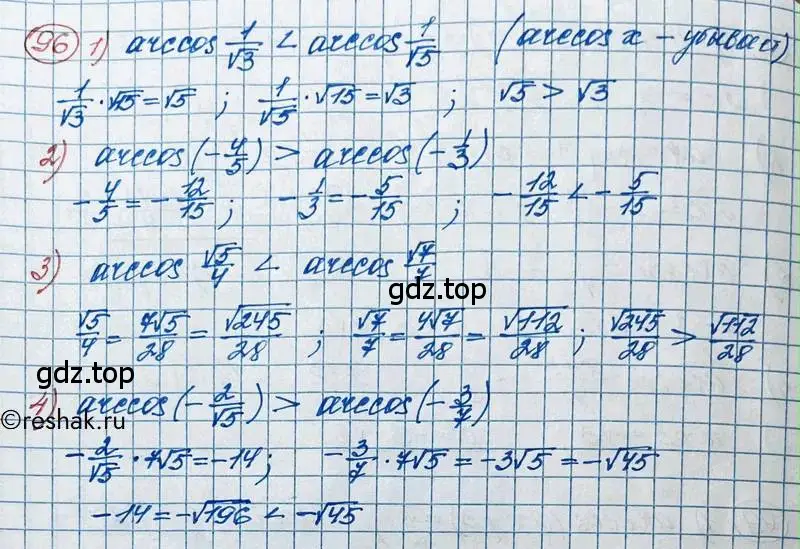 96 1) arccos 1/√3 < arccos 1/√5 (arccos x – убывает)
1/√3 · √15 = √5 ; 1/√5 · √15 = √3 ; √5 > √3
2) arccos(-4/5) > arccos(-1/3)
-4/5 = -12/15 ; -1/3 = -5/15 ; -12/15 < -5/15
3) arccos √5/4 < arccos √7/7
gdz.top
√5/4 = 7√5/28 = √245/28 ; √7/7 = 4√7/28 = √112/28 ; √245/28 > √112/28
gdz.top
4) arccos(-2/√5) > arccos(-3/7)
©reshak.ru
-2/√5 · 7√5 = -14 ; -3/7 · 7√5 = -3√5 = -√45
-14 = -√196 < -√45